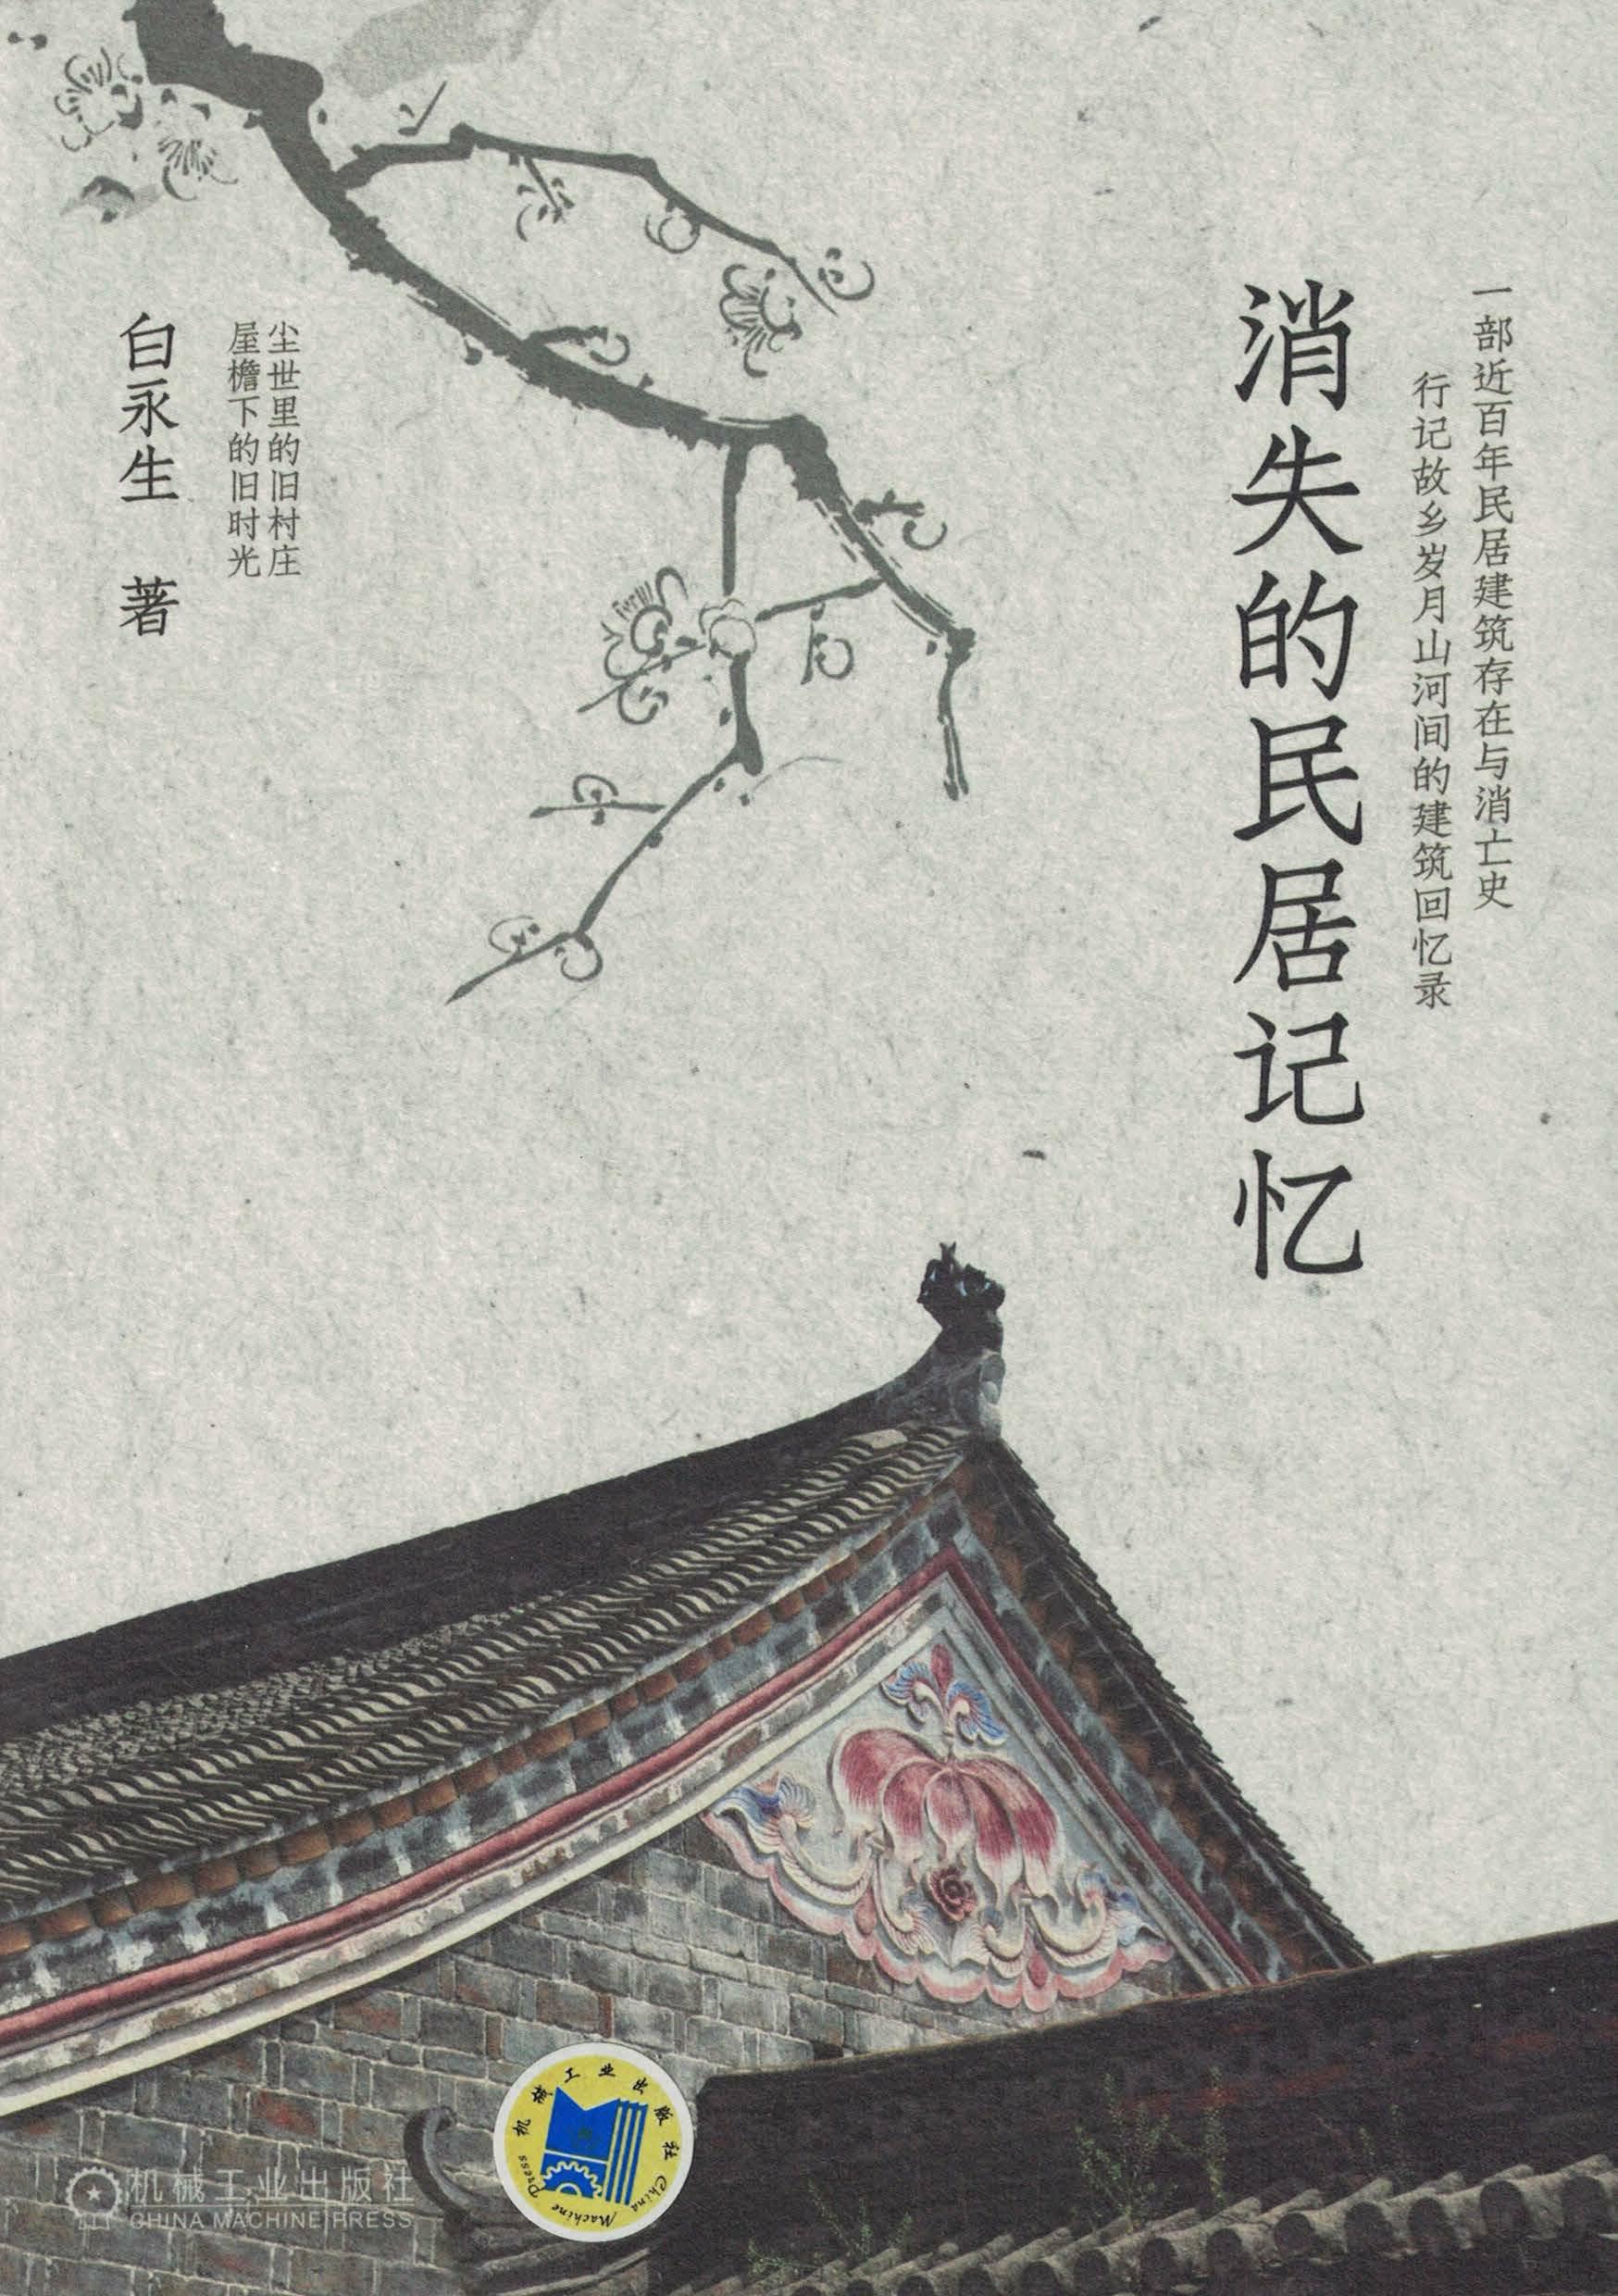 一部近百年民居建筑存在与消亡史
行记故乡岁月山河间的建筑回忆录
消失的民居记忆
尘世里的旧村庄
屋檐下的旧时光
白永生 著
机械工业出版社
China Machine Press
机械工业出版社
CHINA MACHINE PRESS